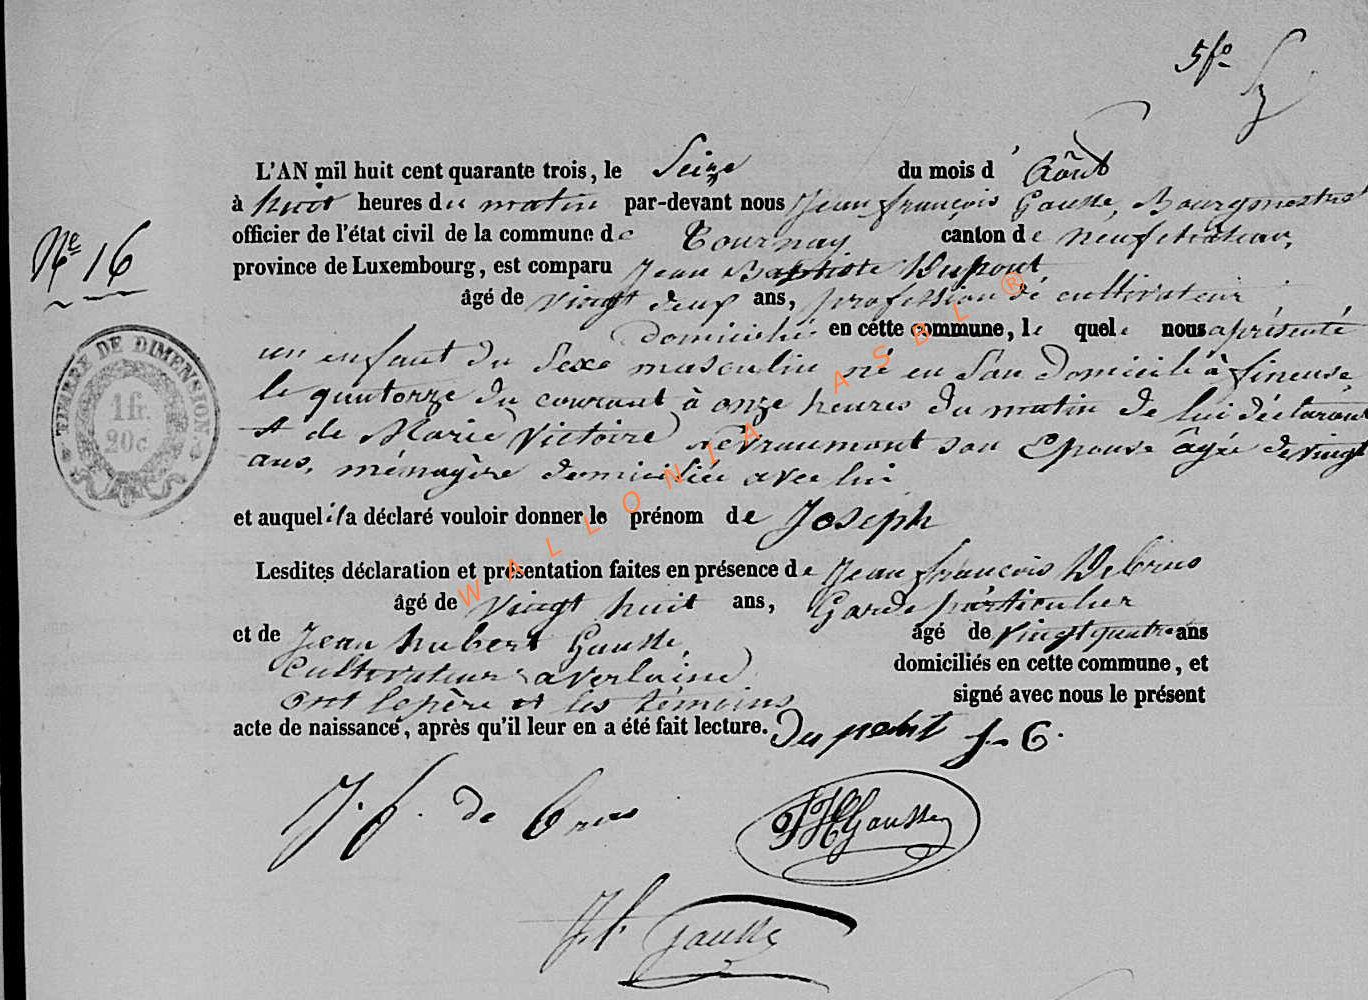 5 fo
L'AN mil huit cent quarante trois, le Seize du mois d' Août
à huit heures du matin par-devant nous Jean françois Gausse, Bourgmestre
officier de l'état civil de la commune de Tournay canton de neufchateau,
N° 16
province de Luxembourg, est comparu Jean Baptiste Dupont
âgé de vingt deux ans, profession de cultivateur
domicilié en cette commune, le quel nous a présenté
un enfant du Sexe masculin né en Son Domicile à fineuse,
le quatorze du courant à onze heures du matin de lui déclarant
et de Marie Victoire son Epouse âgée de vingt
ans, ménagère domiciliée avec lui
TIMBRE DE DIMENSION
1 fr.
20 c
et auquel il a déclaré vouloir donner le prénom de Joseph
Lesdites déclaration et présentation faites en présence de Jean françois Debrus
âgé de vingt huit ans, Garde particulier
et de Jean hubert Gausse, âgé de vingt quatre ans
Cultivateur a verlaine domiciliés en cette commune, et
ont le père et les témoins signé avec nous le présent
acte de naissance, après qu'il leur en a été fait lecture. Dupont J. B.
J. f. de brus
JH Gausse
J. f. Gausse
WALLONIA ASBL ®